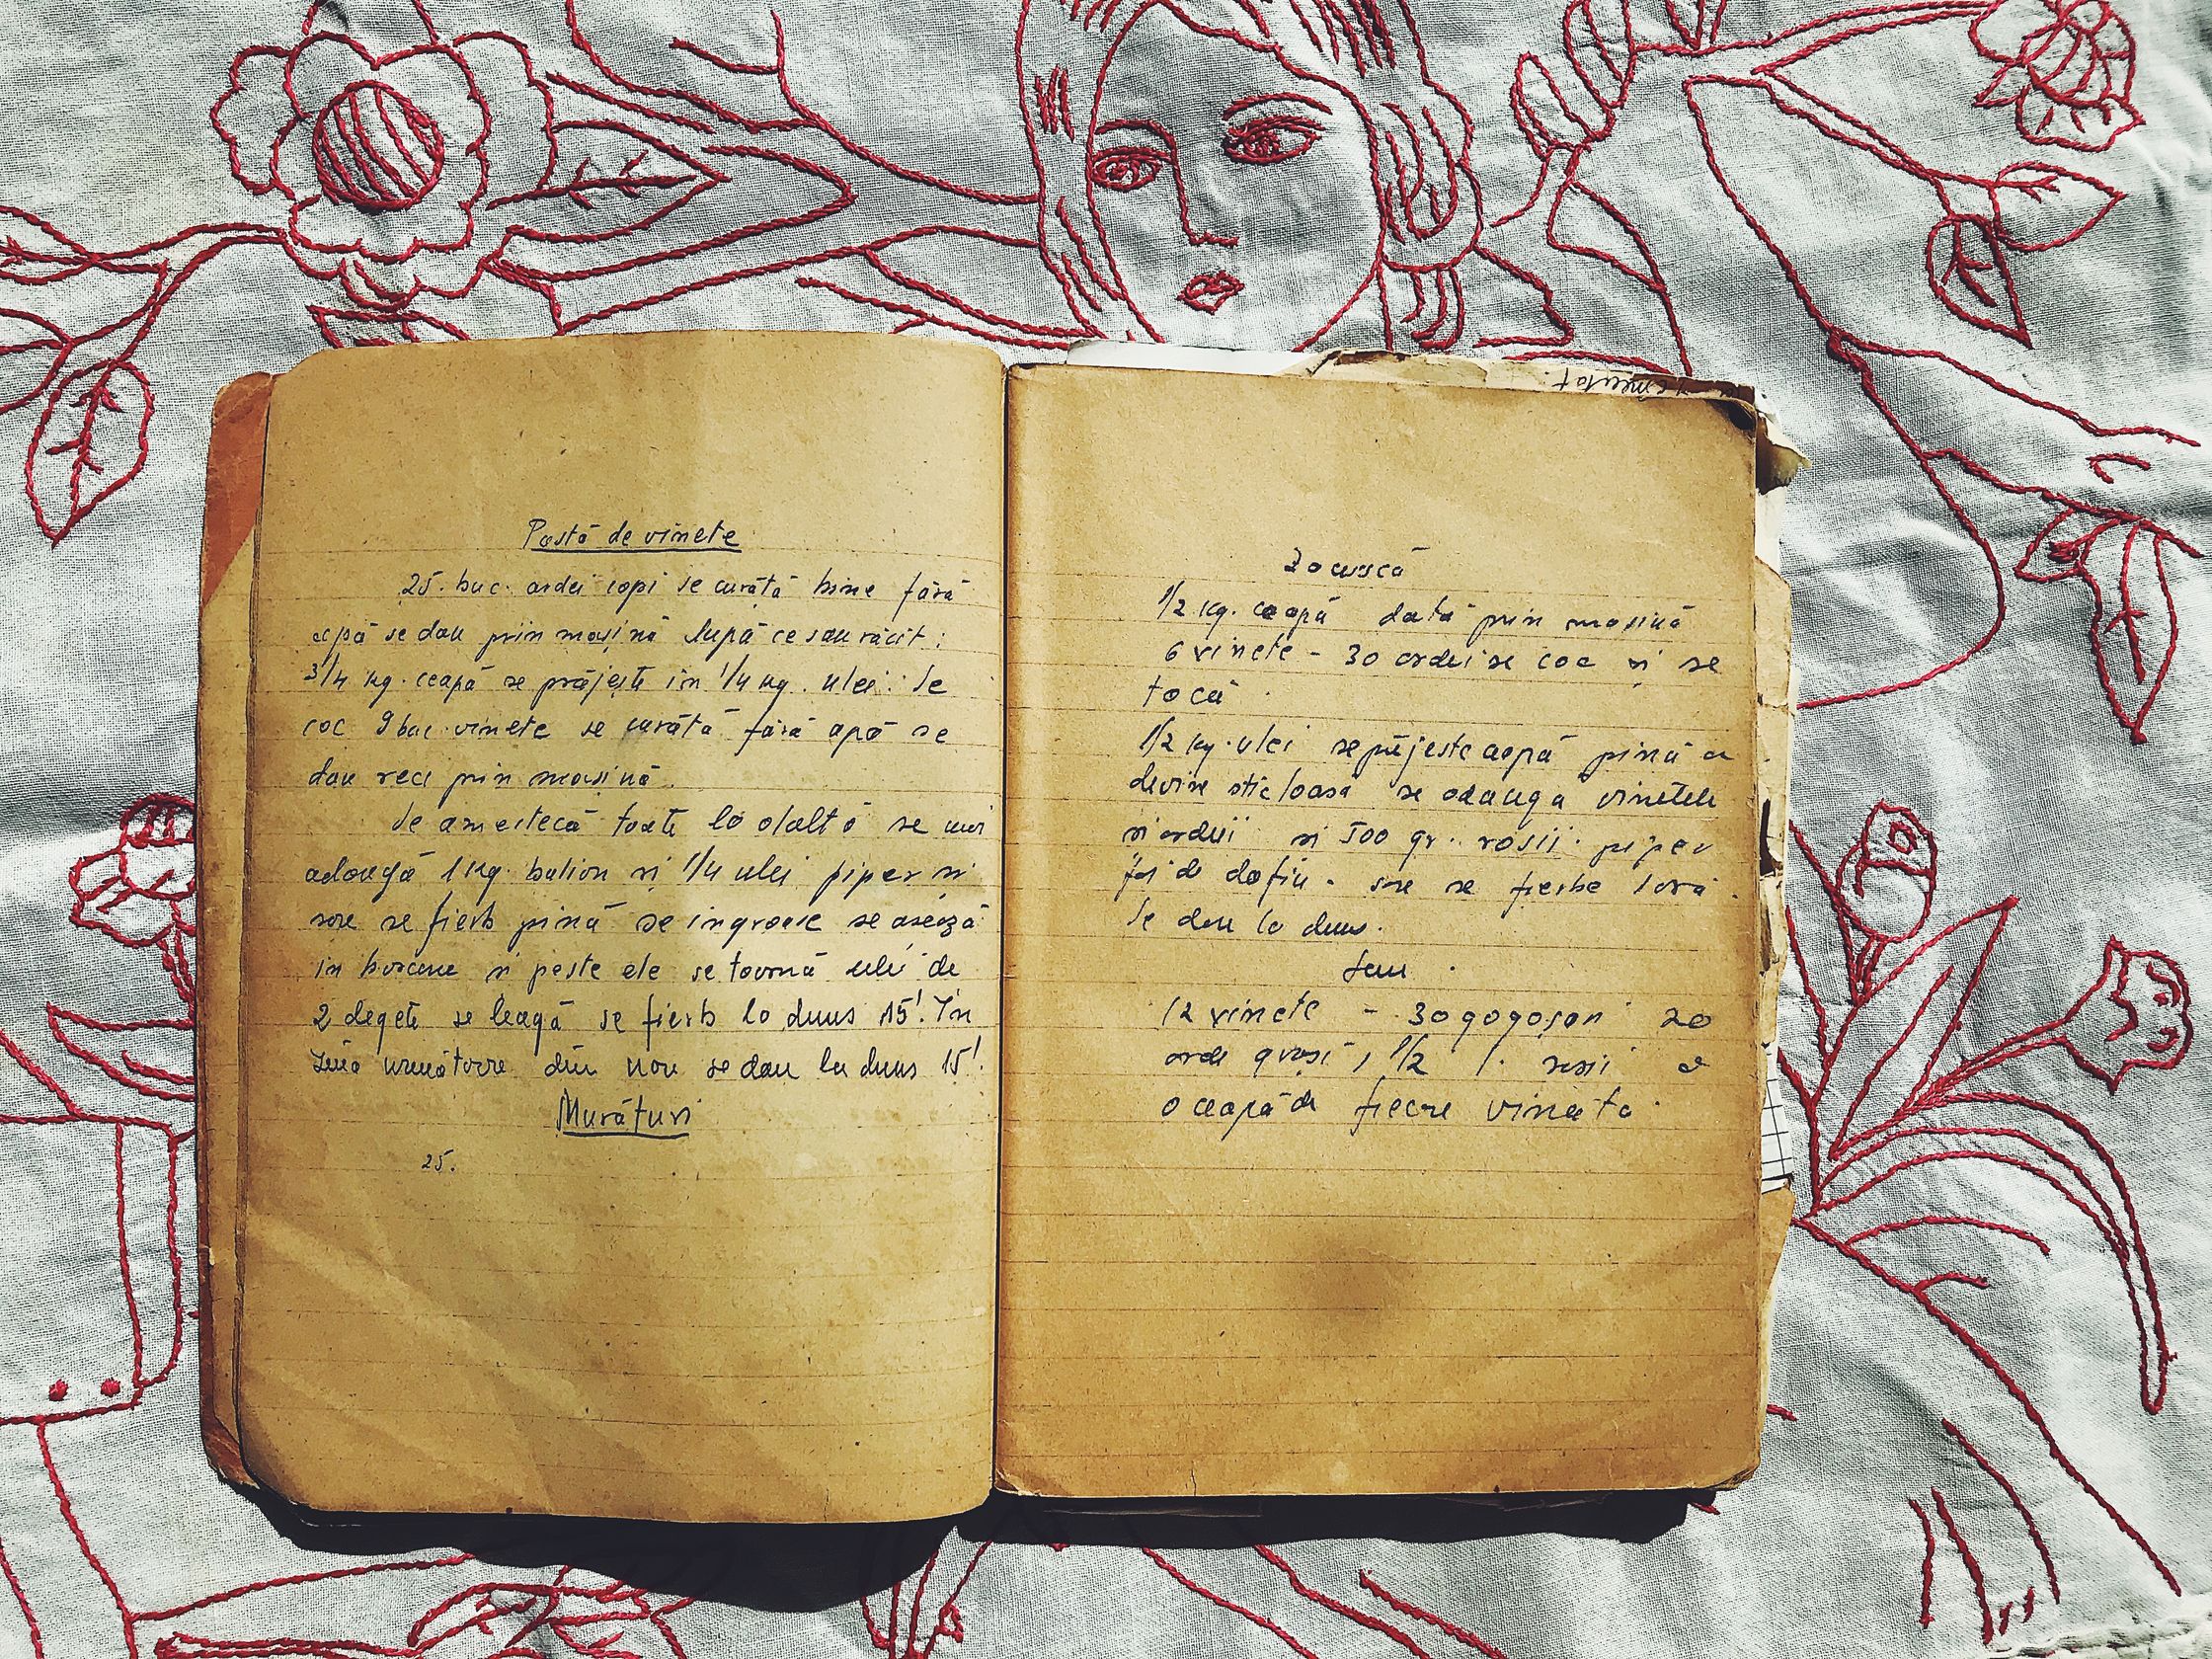 Pastă de vinete
25. buc. ardei copi se curăță bine fără
apă se dau prin mașină după ce sau răcit;
3/4 kg. ceapă se prăjește in 1/4 kg. ulei. Se
coc 9 buc. vinete se curăță fără apă se
dau reci prin mașină.
Se amestecă toate la olaltă se mai
adaugă 1 kg. bulion și 1/4 ulei piper si
sare se fierb pină se ingroașe se asează
in borcane si peste ele se toarnă ulei de
2 degete se leagă se fierb la duns 15! In
ziua urmatoare din nou se dau la duns 15!
Murături
25.
Zacuscă
1/2 kg. ceapă dată prin masină
6 vinete - 30 ardei se coc si se
tocă.
1/2 kg. ulei se prăjeste ceapă pină a
devine sticloasă se adauga vinetele
si ardeii si 500 gr. rosii. piper
foi de dafin. sare se fierbe
Se dau la duns.
Sau.
12 vinete - 30 gogoșari 20
ardei grasi, 1/2 rosii
o ceapă de fiecare vinătă.